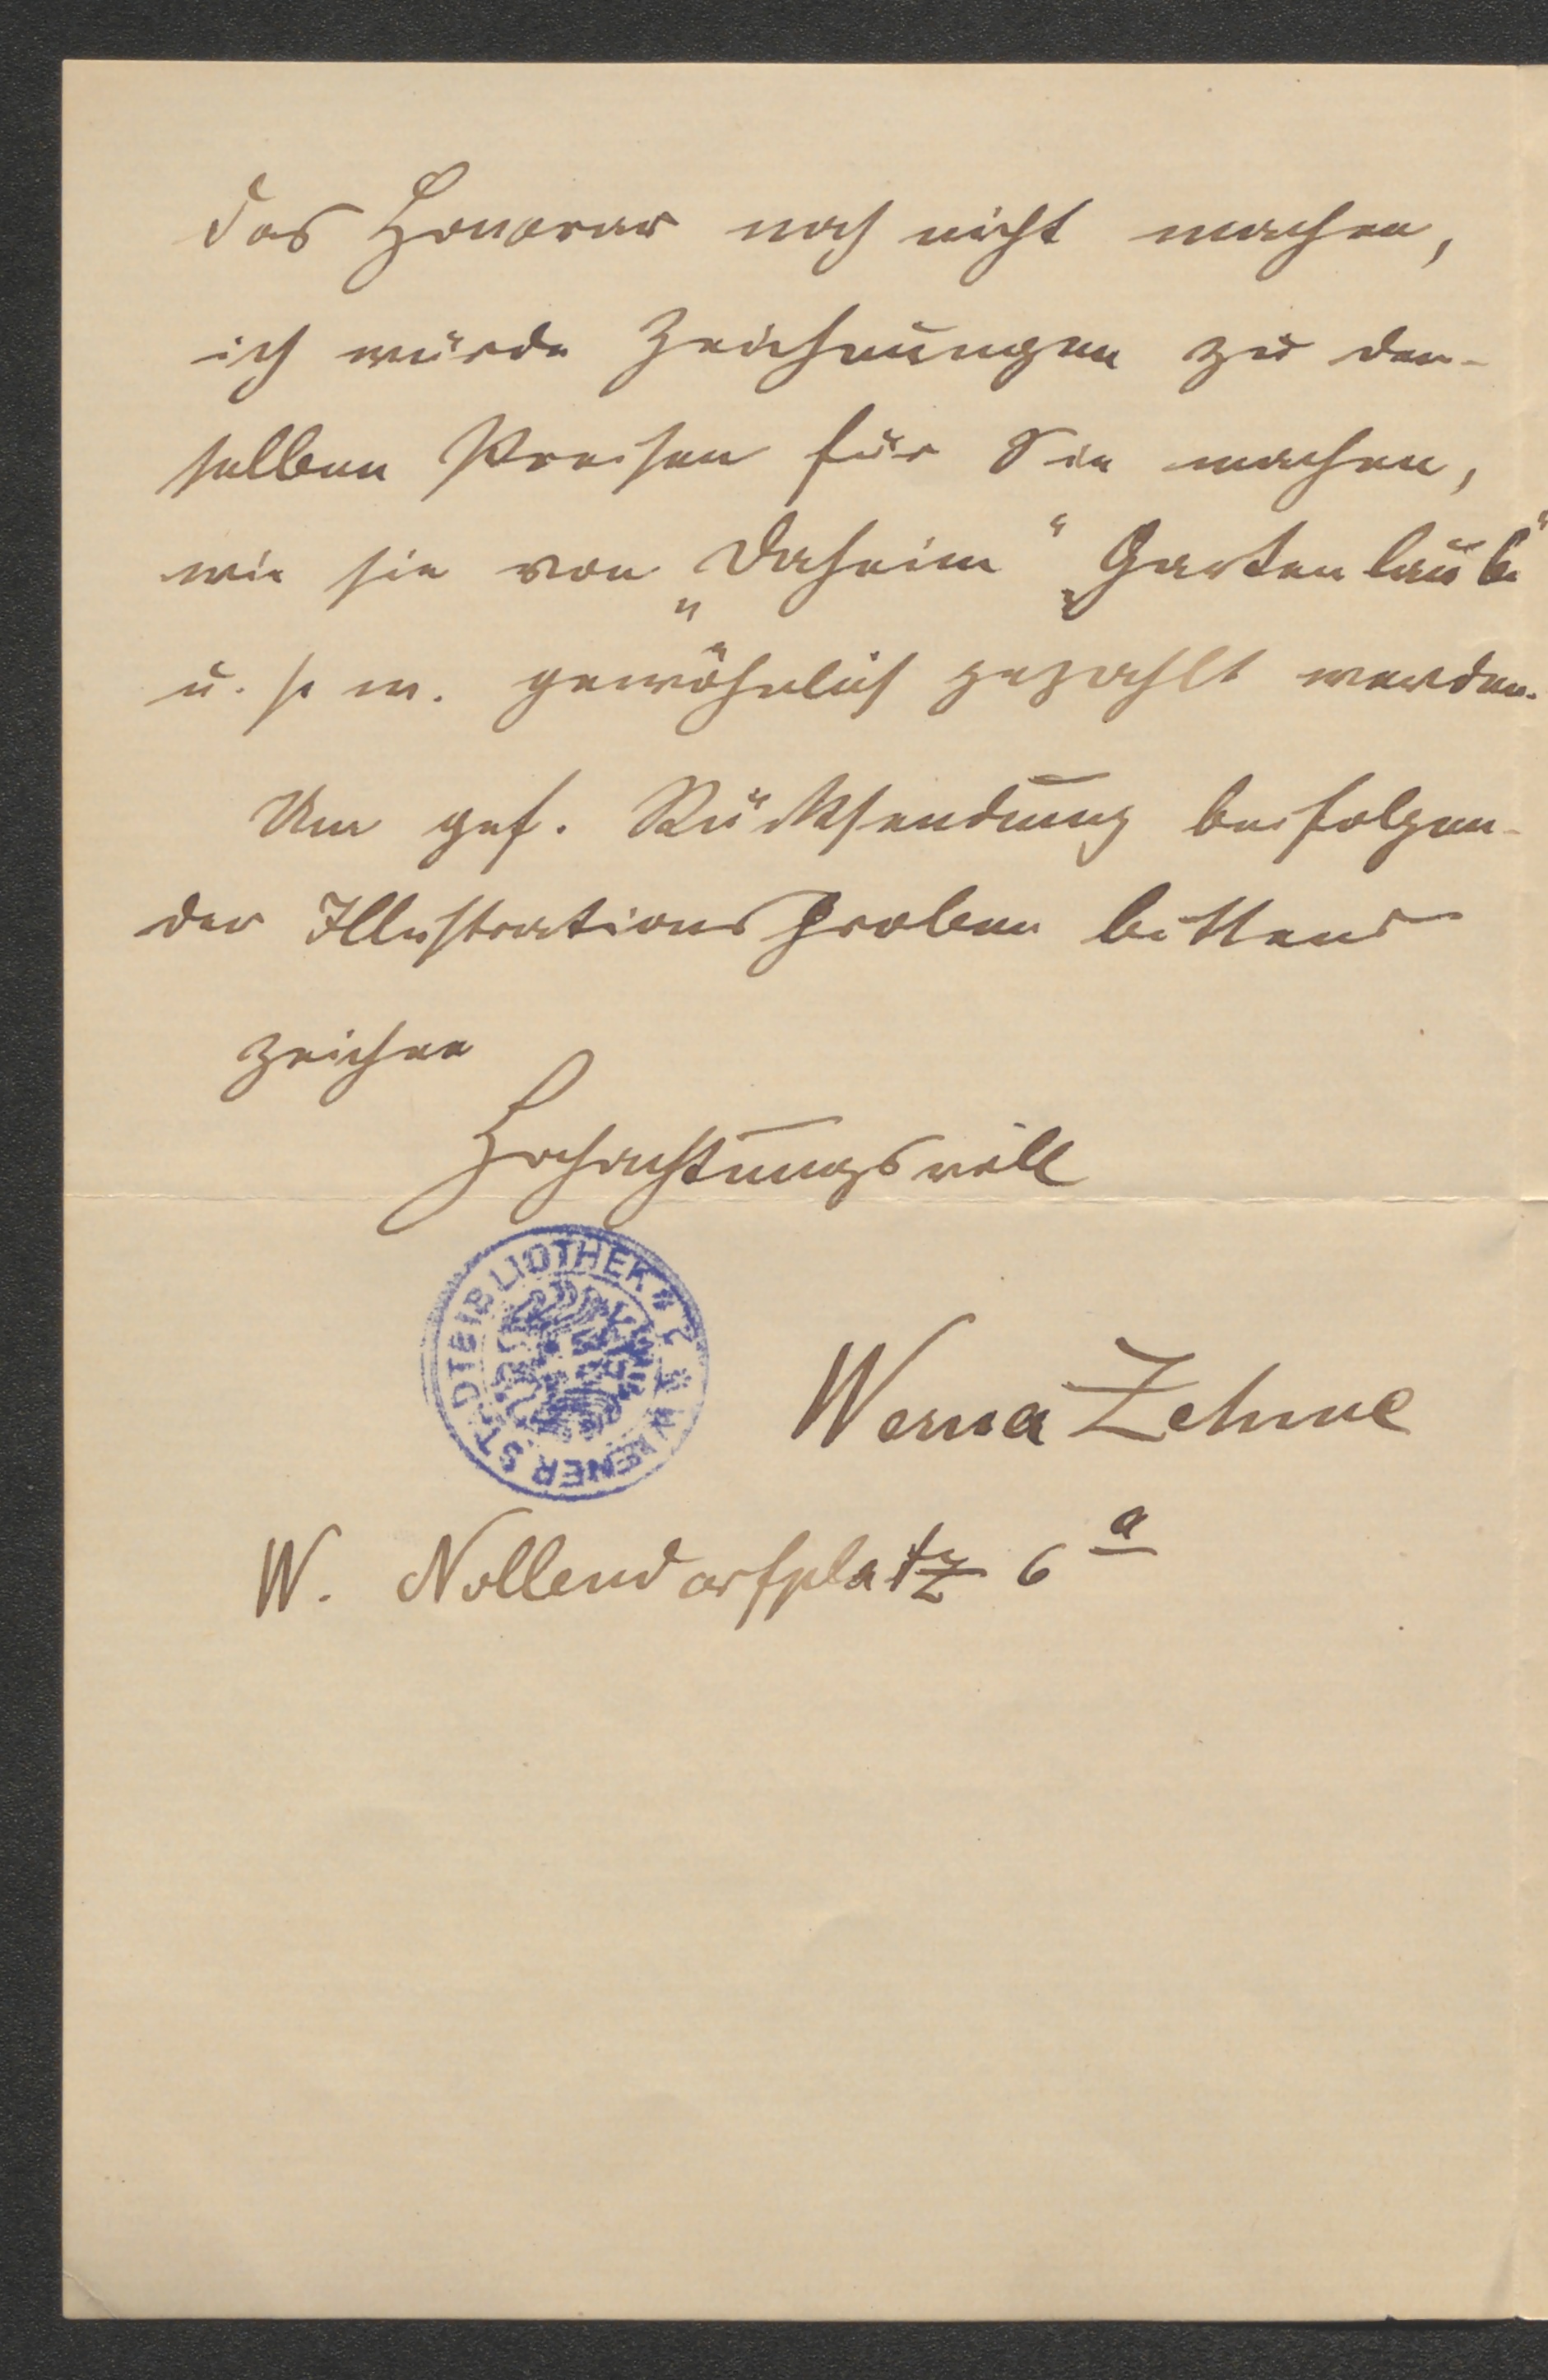 das Honorar noch nicht machen,
ich würde Zeichnungen zu den-
selben Preisen für Sie machen,
wie sie von „Daheim“ „Gartenlaube“
u. s. w. gewöhnlich gezahlt werden.
Um gef. Rücksendung beifolgen-
der Illustrationsproben bittend
zeichne
Hochachtungsvoll
WIENER STADTBIBLIOTHEK
Werner Zehme
W. Nollendorfplatz 6 a